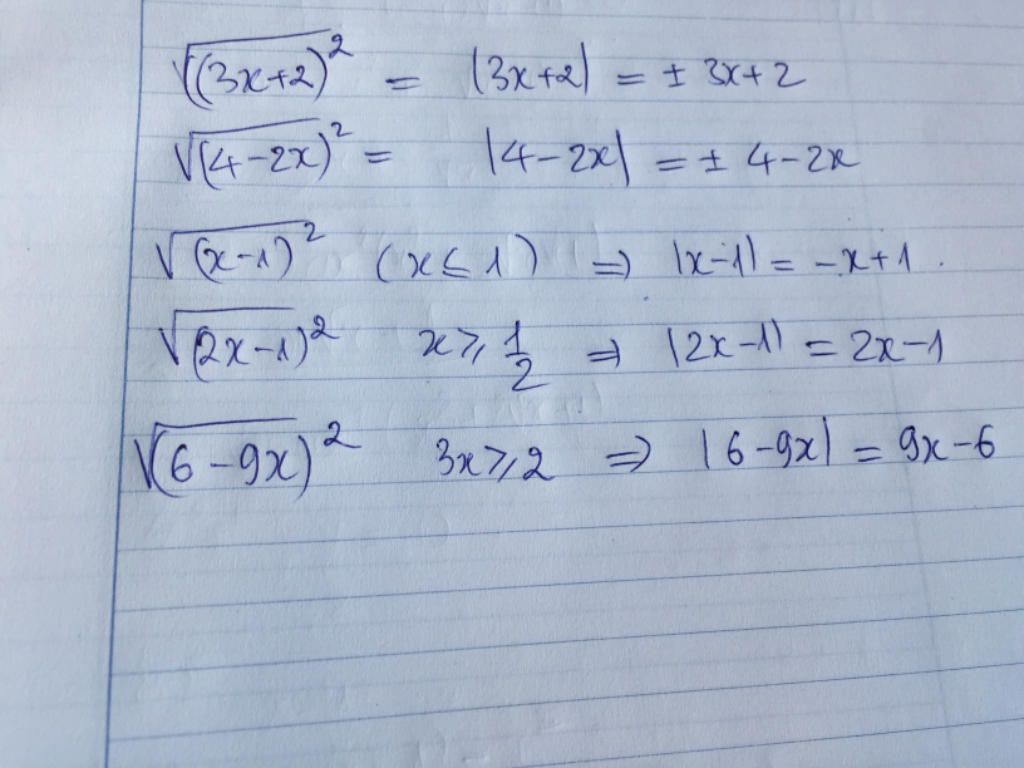 √(3x+2)² = |3x+2| = ± 3x+2
√(4-2x)² = |4-2x| = ± 4-2x
√(x-1)² (x≤1) ⇒ |x-1| = -x+1.
√(2x-1)² x≥1/2 ⇒ |2x-1| = 2x-1
√(6-9x)² 3x≥2 ⇒ |6-9x| = 9x-6